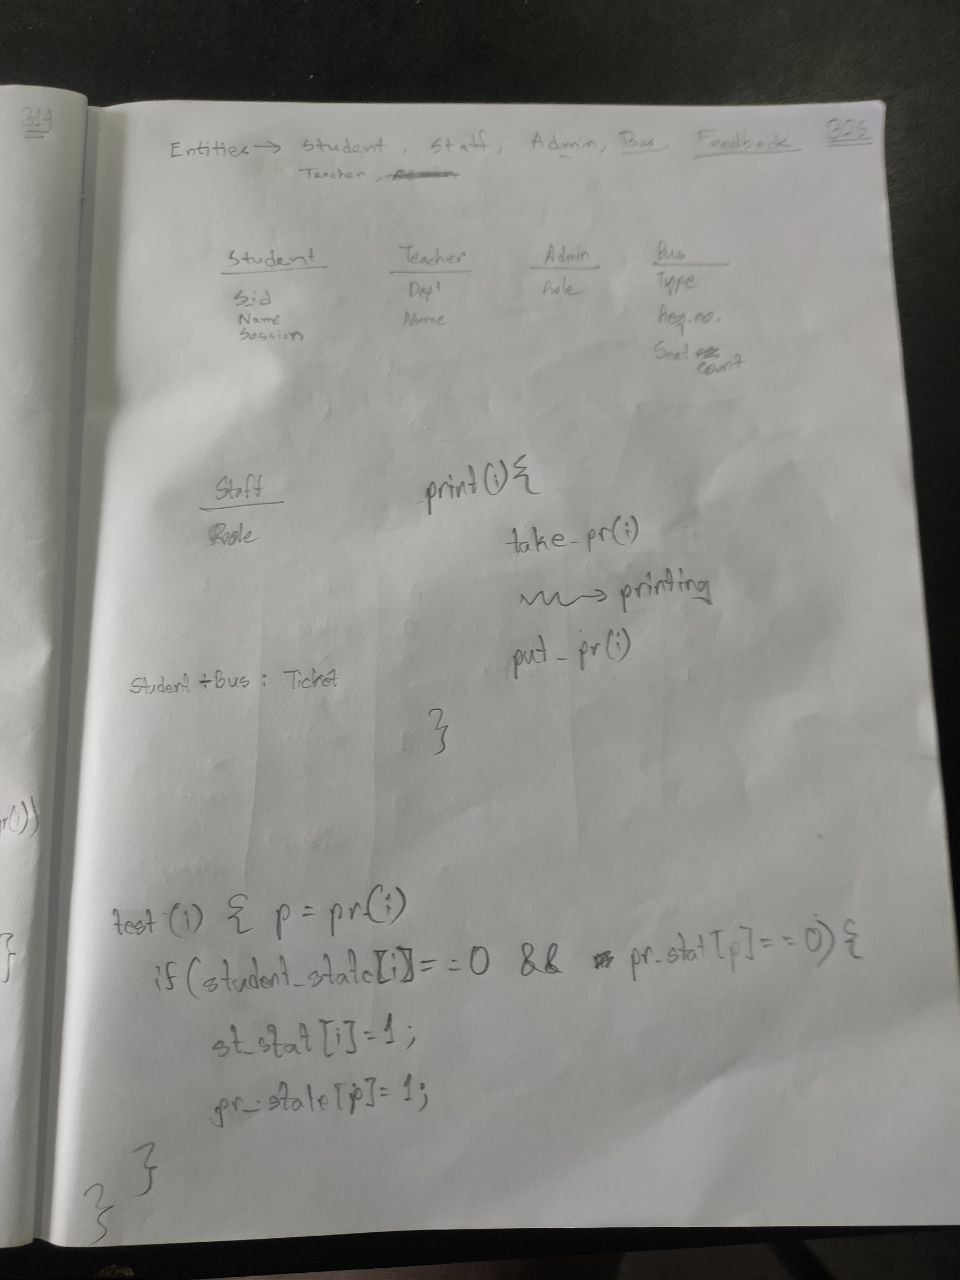 314
325
Entities → Student, Staff, Admin, Bus, Feedback
Teacher,
Student
Sid
Name
Session
Teacher
Dept
Name
Admin
Role
Bus
Type
Reg.no.
Seat count
Staff
Role
print(i){
take_pr(i)
→ printing
put_pr(i)
}
Student ÷ Bus : Ticket
r(i))
}
test(i) { p = pr(i)
if(student_state[i]==0 && pr_stat[p]==0){
st_stat[i]=1;
pr_state[p]=1;
}
}